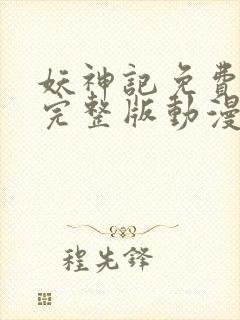 妖神記免費
完整版動漫
程先鋒